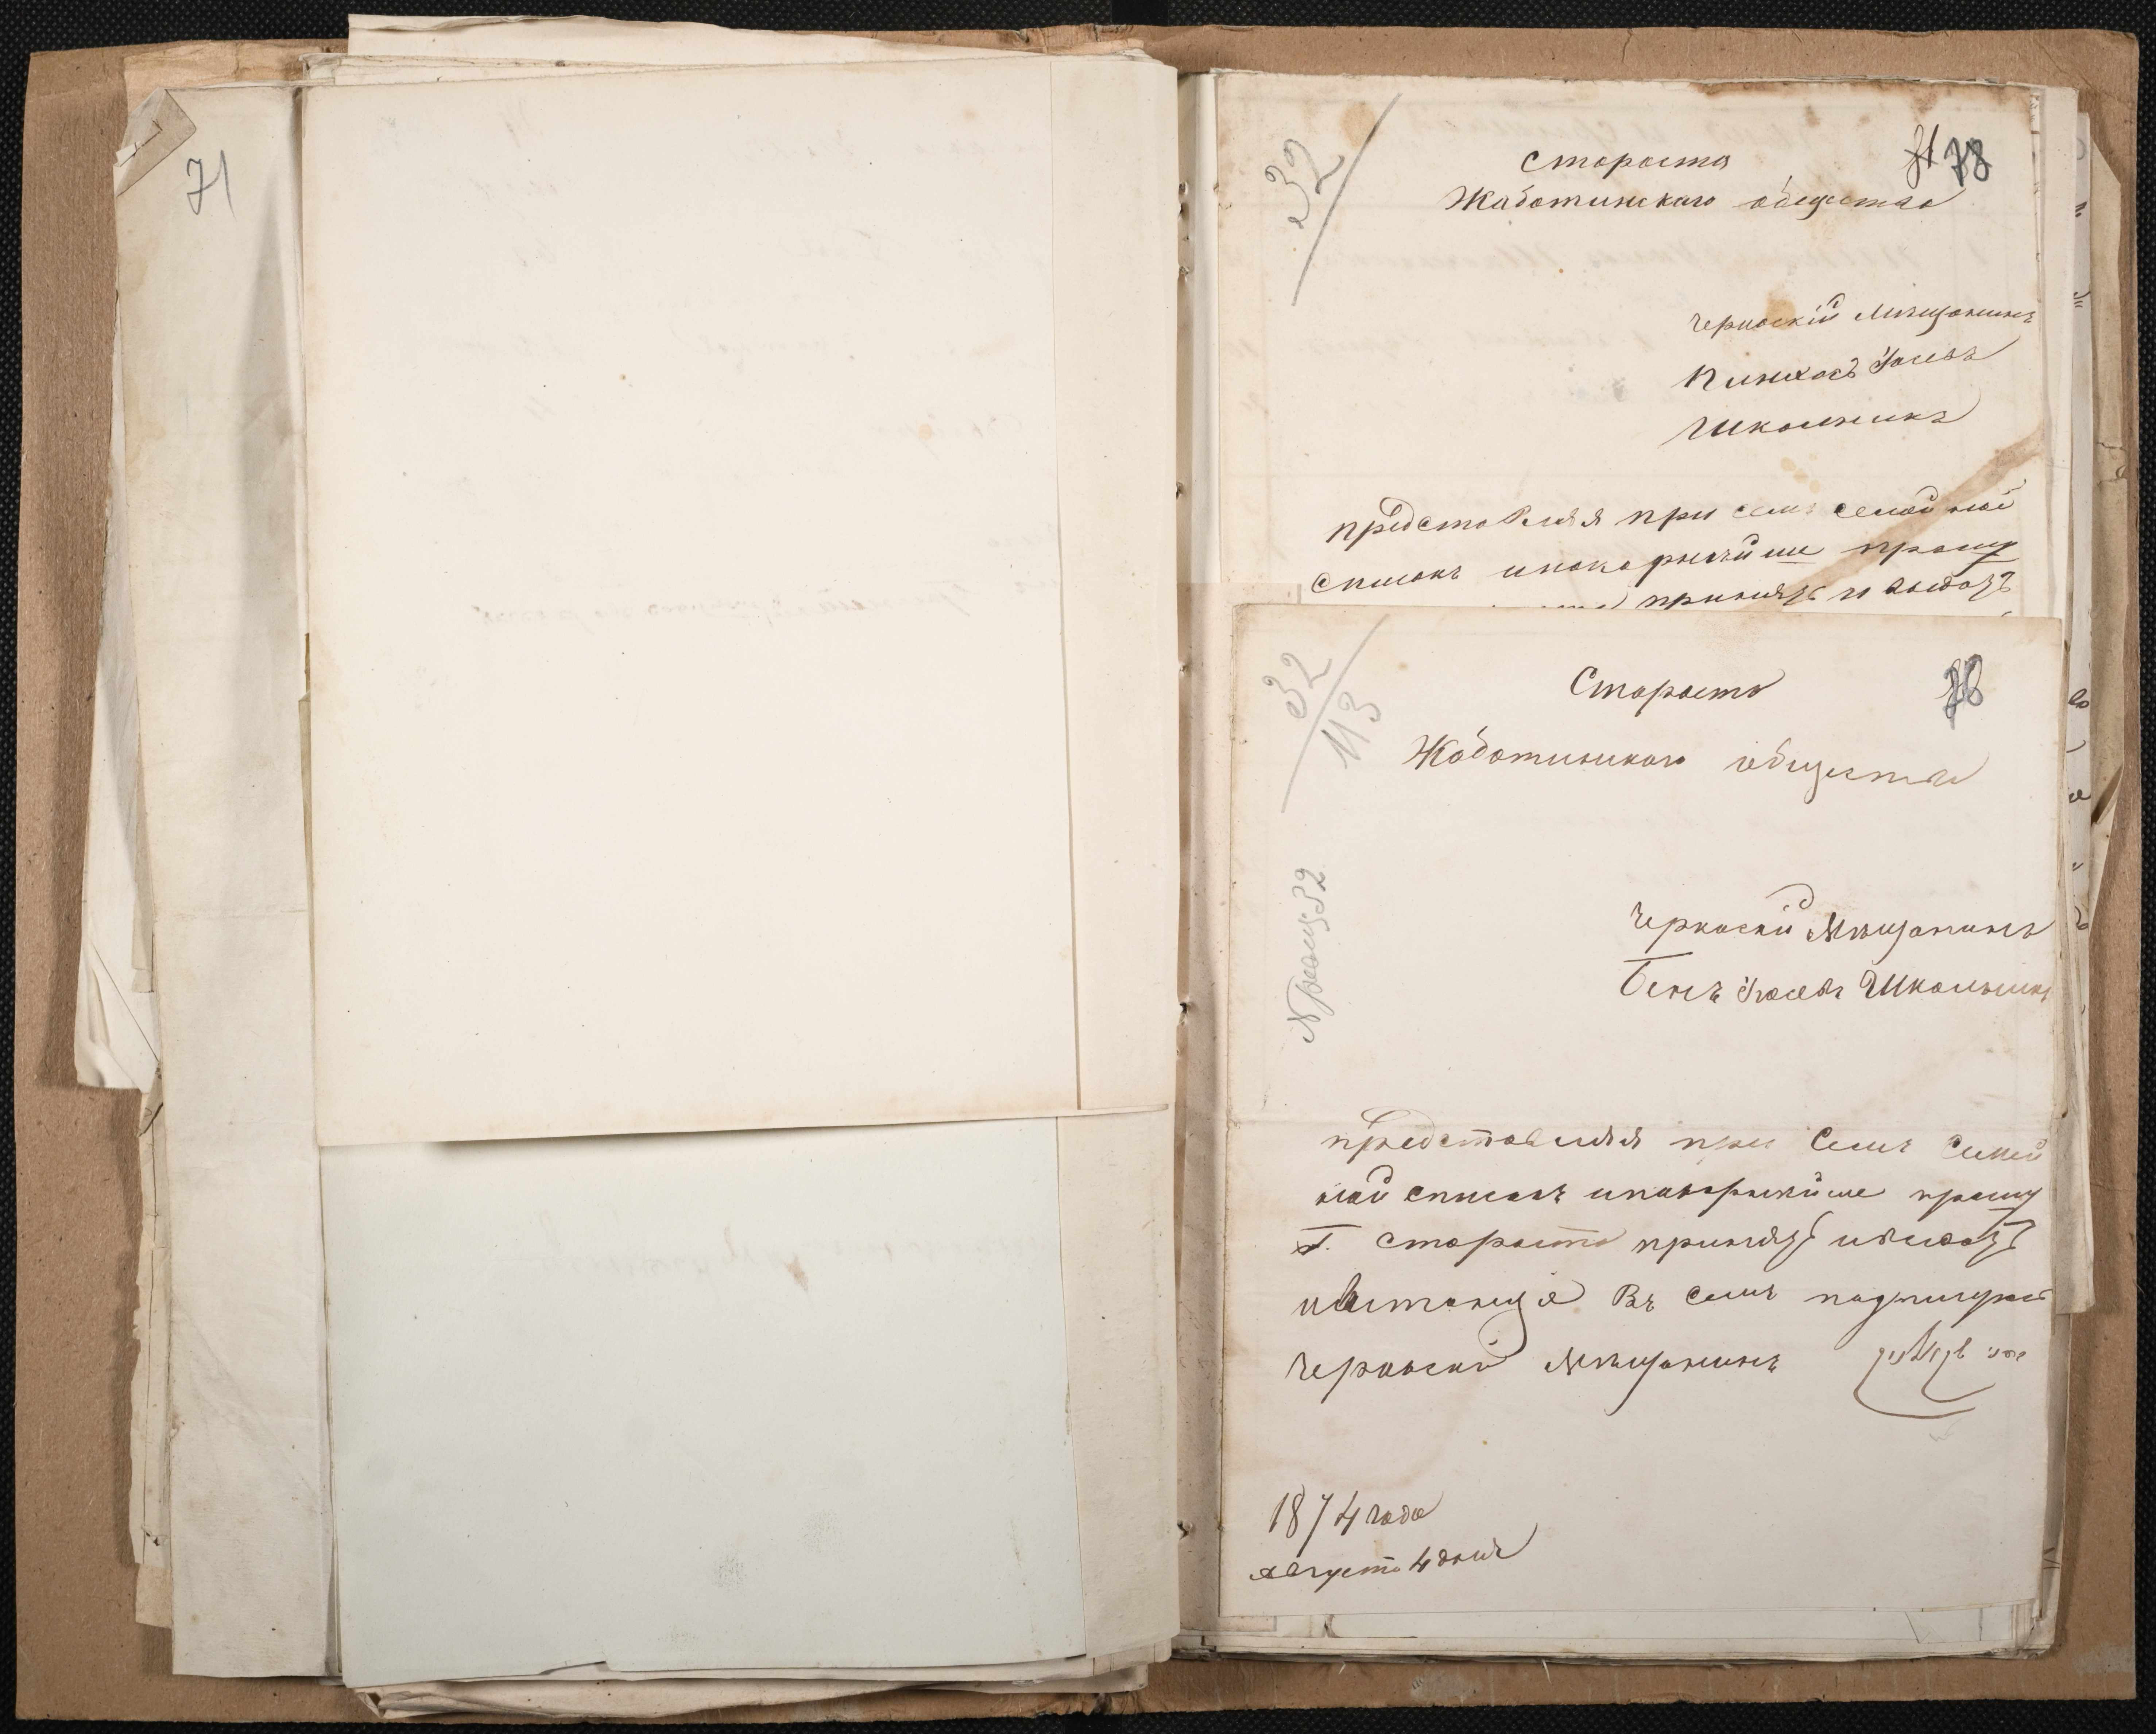 71
32
71 78
Староста
Жаботинскаго общества
Черкаскій Мѣщанинъ
Пинхасъ Іосевъ
Школникъ
представляя при семъ семейной
списокъ и покорнѣйше прошу
принять и выдать
32
113
78
Старосто
Жаботинскаго общества
Черкаскій Мѣщанинъ
Бенъ Іосевъ Школьникъ
представляя при семъ семей
ной списокъ и покорнѣйше прошу
Г. старосто принять и выдать
квитанція Въ семъ
Черкаскій Мѣщанинъ
1874 года
августа 4 дня